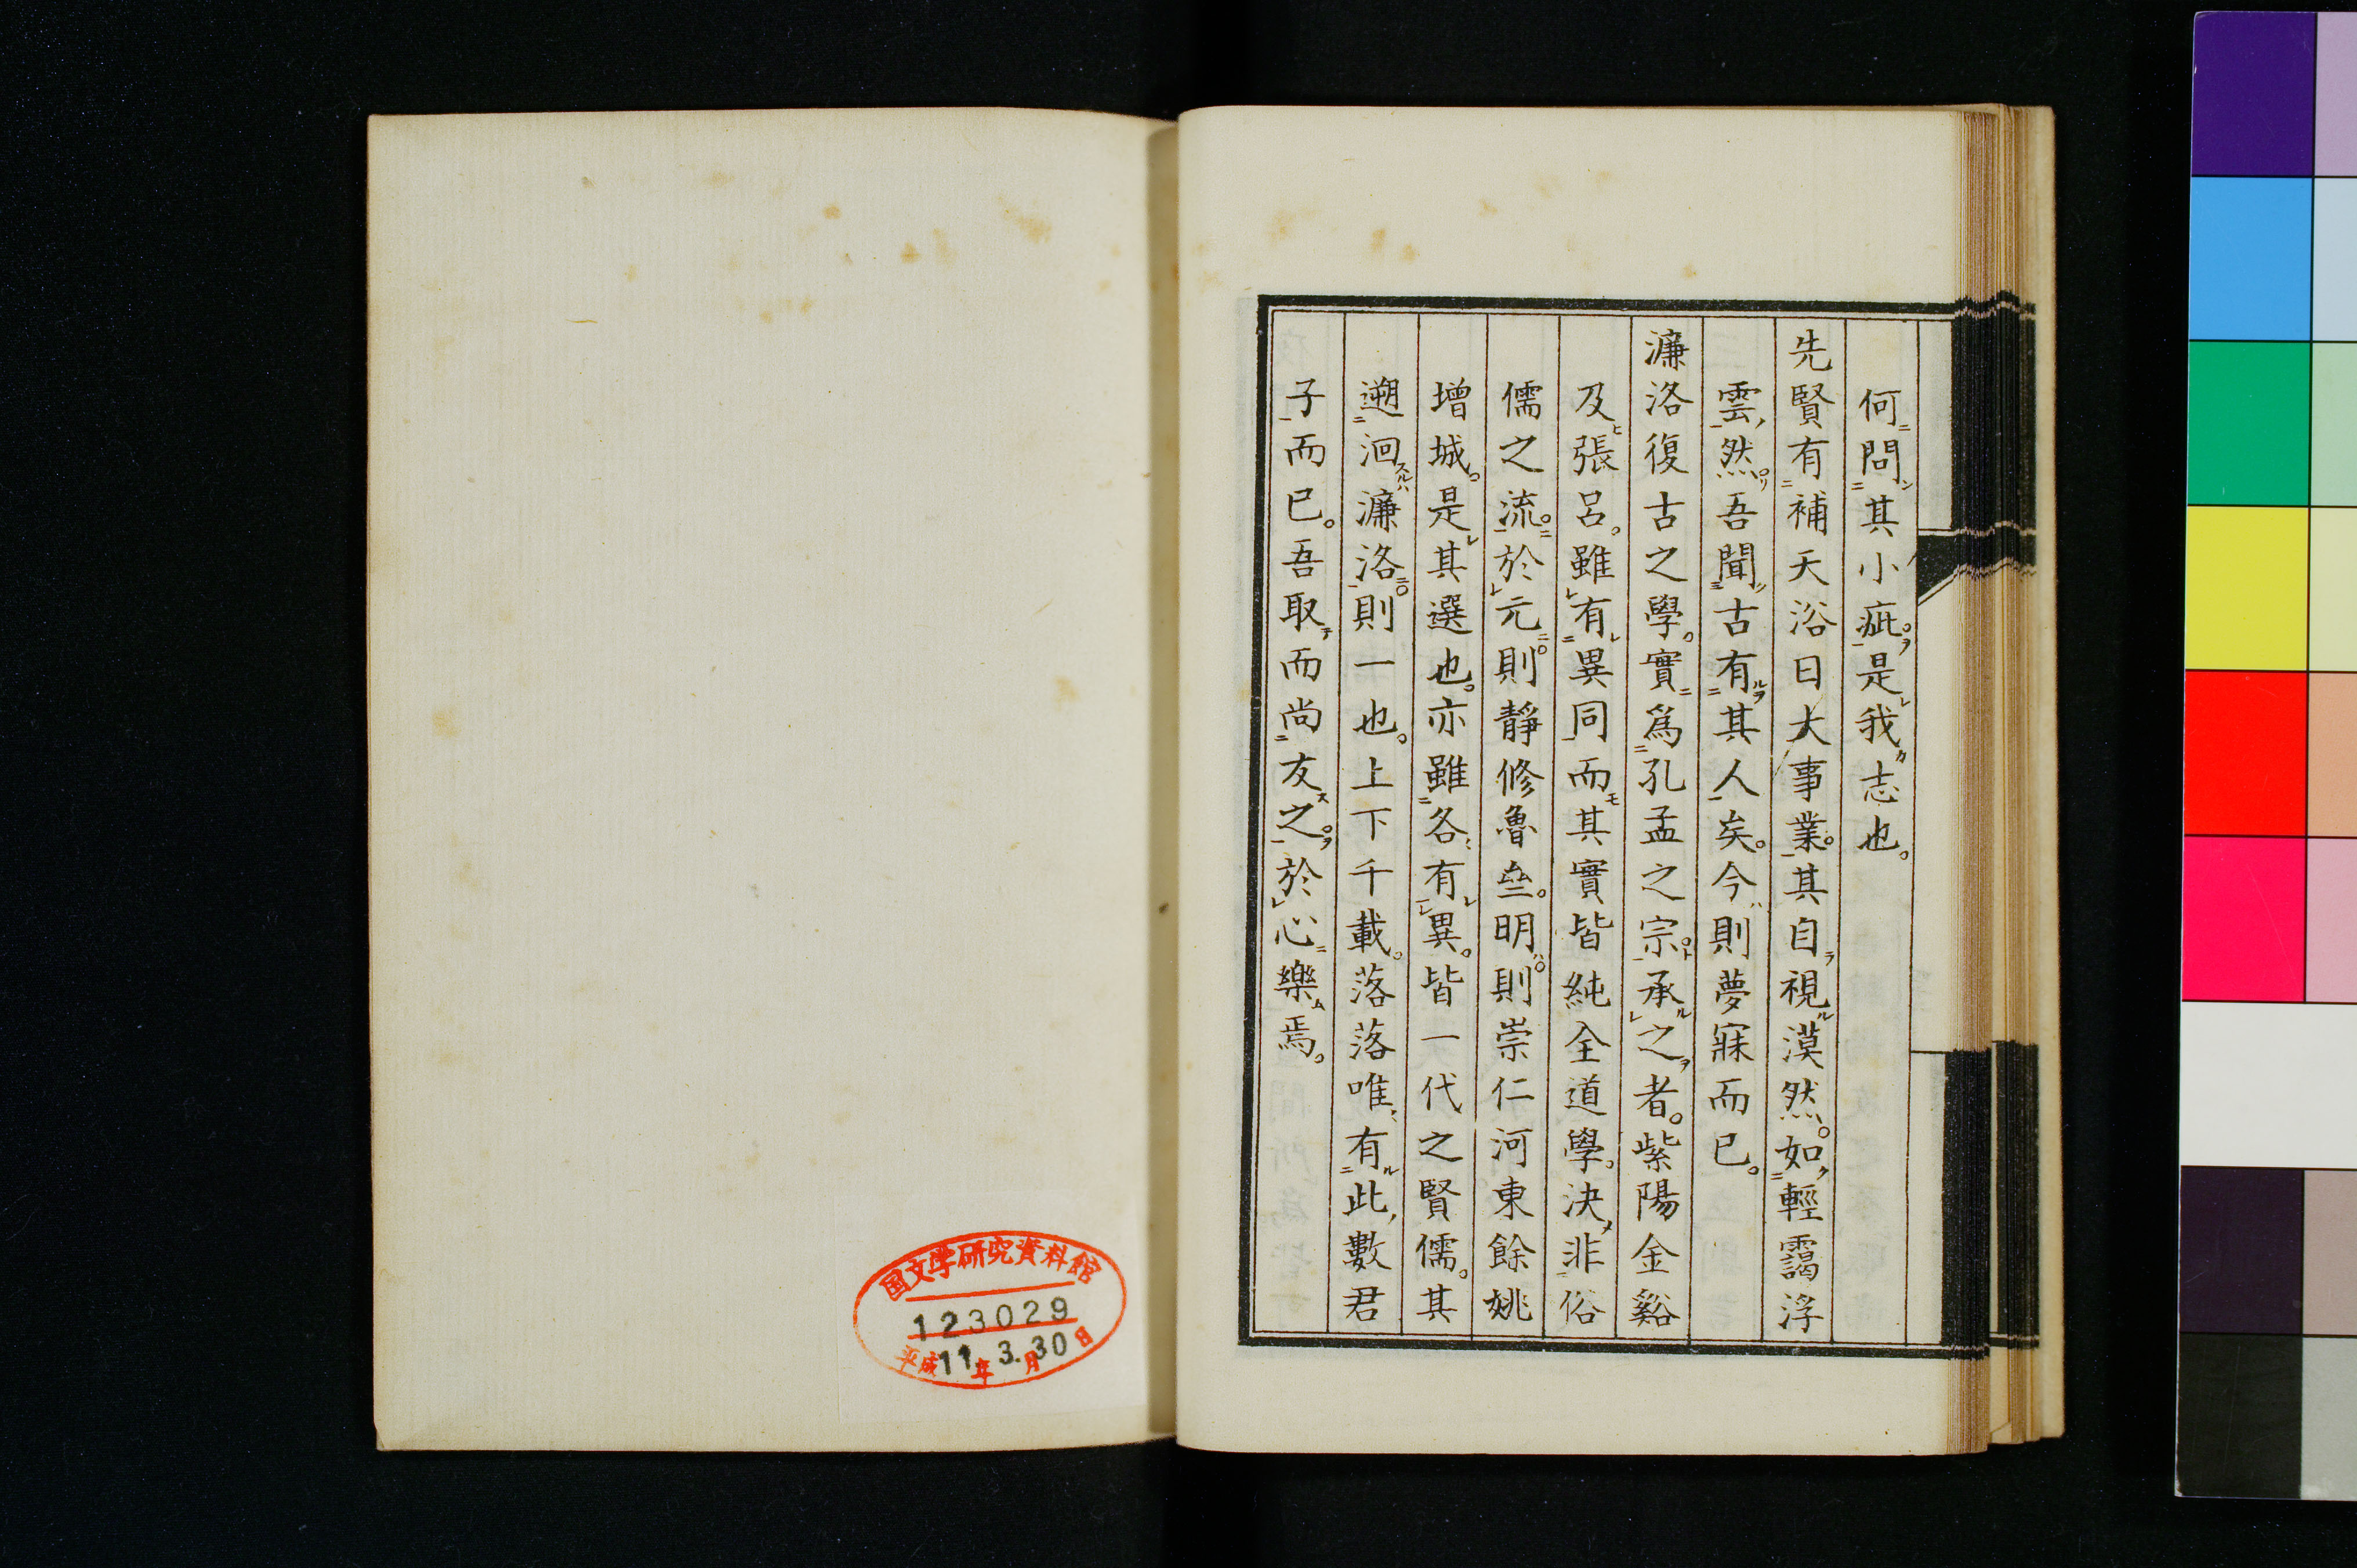 何問其小疵。是我志也。
先賢有補天浴日大事業。其自視漠然。如輕靄浮
雲然。吾聞古有其人矣。今則夢寐而已。
濂洛復古之學。實爲孔孟之宗。承之者。紫陽金谿
及張呂。雖有異同而其實皆純全道學。決非俗
儒之流。於元則靜修魯齋。明則崇仁河東餘姚
增城。是其選也。亦雖各有異。皆一代之賢儒。其
遡洄濂洛則一也。上下千載。落落唯有此數君
子而已。吾取而尚友之。於心樂焉。
国文学研究資料館
123029
平成11年3.月30日